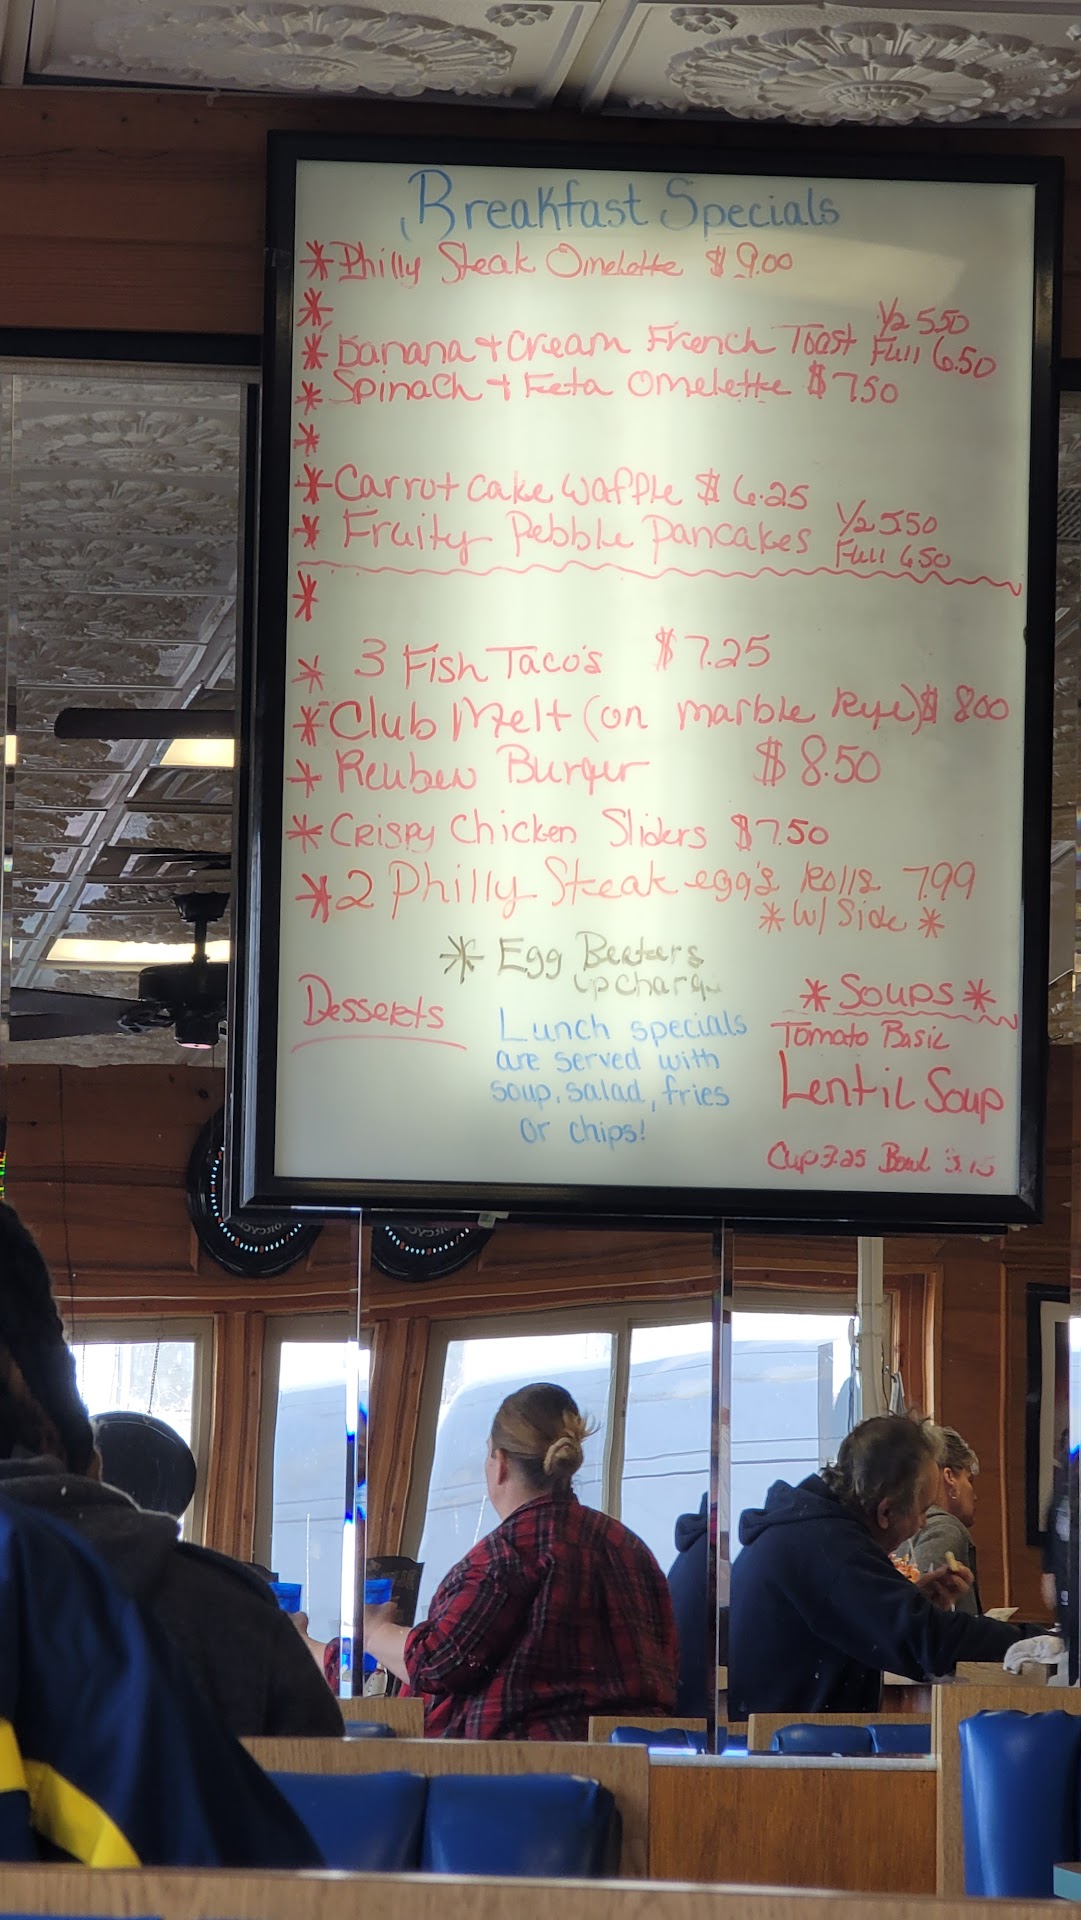 Breakfast Specials
* Philly Steak Omelette $9.00
*
* Banana + Cream French Toast 1/2 5.50
Full 6.50
* Spinach + Feta Omelette $7.50
*
* Carrot cake waffle $6.25
* Fruity Pebble Pancakes 1/2 5.50
Full 6.50
*
* 3 Fish Taco's $7.25
* Club Melt (on marble Rye) $8.00
* Reuben Burger $8.50
* Crispy Chicken Sliders $7.50
* 2 Philly Steak egg's Rolls 7.99
* w/ Side *
* Egg Beaters
upcharge
Desserts
Lunch specials
are served with
soup, salad, fries
or chips!
* Soups *
Tomato Basic
Lentil Soup
Cup 3.25 Bowl